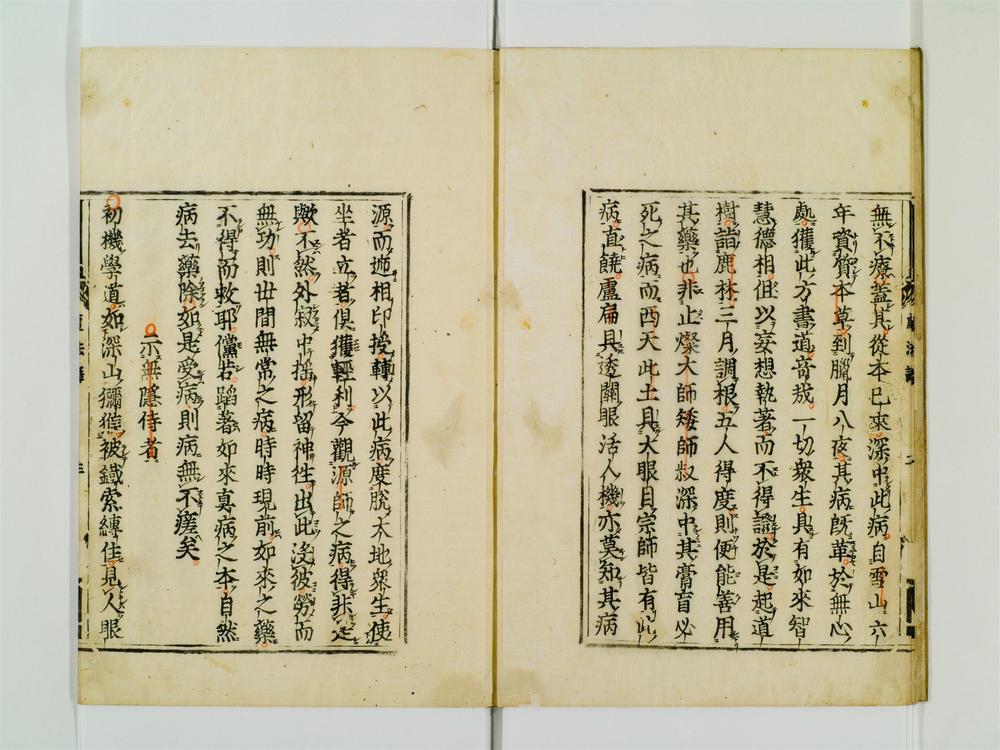 無不療蓋其從本已來深中此病自雪山六
年資質本草到臘月八夜其病既革於無心
處獲此方書道奇哉一切衆生具有如來智
慧德相但以妄想執著而不得證於是起道
樹詣鹿林三月調根五人得度則便能善用
其藥也非止燦大師矮師叔深中其膏肓必
死之病而西天此土具大眼目宗師皆有此
病直饒盧扁具透關眼活人機亦莫知其病
源而遞相印授轉以此病度脫大地衆生使
坐者立者俱獲輕利今觀源師之病得非是
歟不然外寂中搖形留神往出此沒彼勞而
無功則世間無常之病時時現前如來之藥
不得而救耶儻若蹈著如來真病之本自然
病去藥除如是受病則病無不瘥矣
示無隱侍者
初機學道如深山獼猴被鐵索縛住見人眼